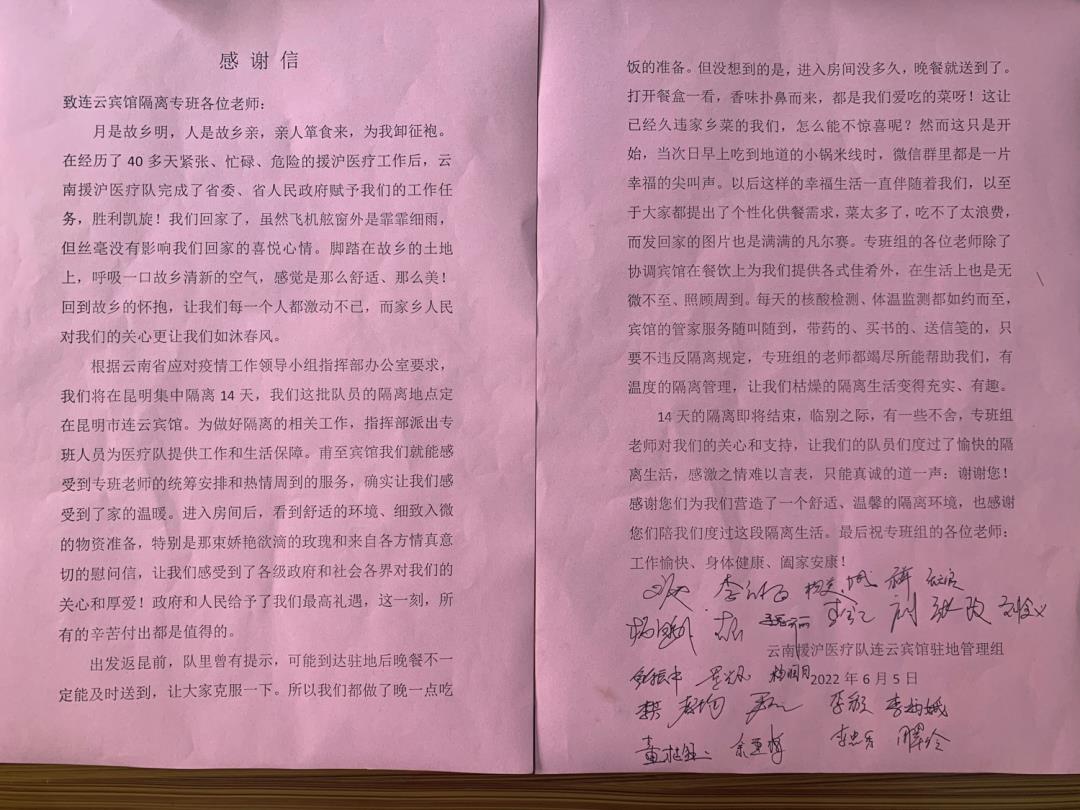 感谢信
致连云宾馆隔离专班各位老师：
月是故乡明，人是故乡亲，亲人箪食来，为我卸征袍。
在经历了 40 多天紧张、忙碌、危险的援沪医疗工作后，云
南援沪医疗队完成了省委、省人民政府赋予我们的工作任
务，胜利凯旋！我们回家了，虽然飞机舷窗外是霏霏细雨，
但丝毫没有影响我们回家的喜悦心情。脚踏在故乡的土地
上，呼吸一口故乡清新的空气，感觉是那么舒适、那么美！
回到故乡的怀抱，让我们每一个人都激动不已，而家乡人民
对我们的关心更让我们如沐春风。
根据云南省应对疫情工作领导小组指挥部办公室要求，
我们将在昆明集中隔离 14 天，我们这批队员的隔离地点定
在昆明市连云宾馆。为做好隔离的相关工作，指挥部派出专
班人员为医疗队提供工作和生活保障。甫至宾馆我们就能感
受到专班老师的统筹安排和热情周到的服务，确实让我们感
受到了家的温暖。进入房间后，看到舒适的环境、细致入微
的物资准备，特别是那束娇艳欲滴的玫瑰和来自各方情真意
切的慰问信，让我们感受到了各级政府和社会各界对我们的
关心和厚爱！政府和人民给予了我们最高礼遇，这一刻，所
有的辛苦付出都是值得的。
出发返昆前，队里曾有提示，可能到达驻地后晚餐不一
定能及时送到，让大家克服一下。所以我们都做了晚一点吃
饭的准备。但没想到的是，进入房间没多久，晚餐就送到了。
打开餐盒一看，香味扑鼻而来，都是我们爱吃的菜呀！这让
已经久违家乡菜的我们，怎么能不惊喜呢？然而这只是开
始，当次日早上吃到地道的小锅米线时，微信群里都是一片
幸福的尖叫声。以后这样的幸福生活一直伴随着我们，以至
于大家都提出了个性化供餐需求，菜太多了，吃不了太浪费，
而发回家的图片也是满满的凡尔赛。专班组的各位老师除了
协调宾馆在餐饮上为我们提供各式佳肴外，在生活上也是无
微不至、照顾周到。每天的核酸检测、体温监测都如约而至，
宾馆的管家服务随叫随到，带药的、买书的、送信笺的，只
要不违反隔离规定，专班组的老师都竭尽所能帮助我们，有
温度的隔离管理，让我们枯燥的隔离生活变得充实、有趣。
14 天的隔离即将结束，临别之际，有一些不舍，专班组
老师对我们的关心和支持，让我们的队员们度过了愉快的隔
离生活，感激之情难以言表，只能真诚的道一声：谢谢您！
感谢您们为我们营造了一个舒适、温馨的隔离环境，也感谢
您们陪我们度过这段隔离生活。最后祝专班组的各位老师：
工作愉快、身体健康、阖家安康！
云南援沪医疗队连云宾馆驻地管理组
杨明月 2022 年 6 月 5 日